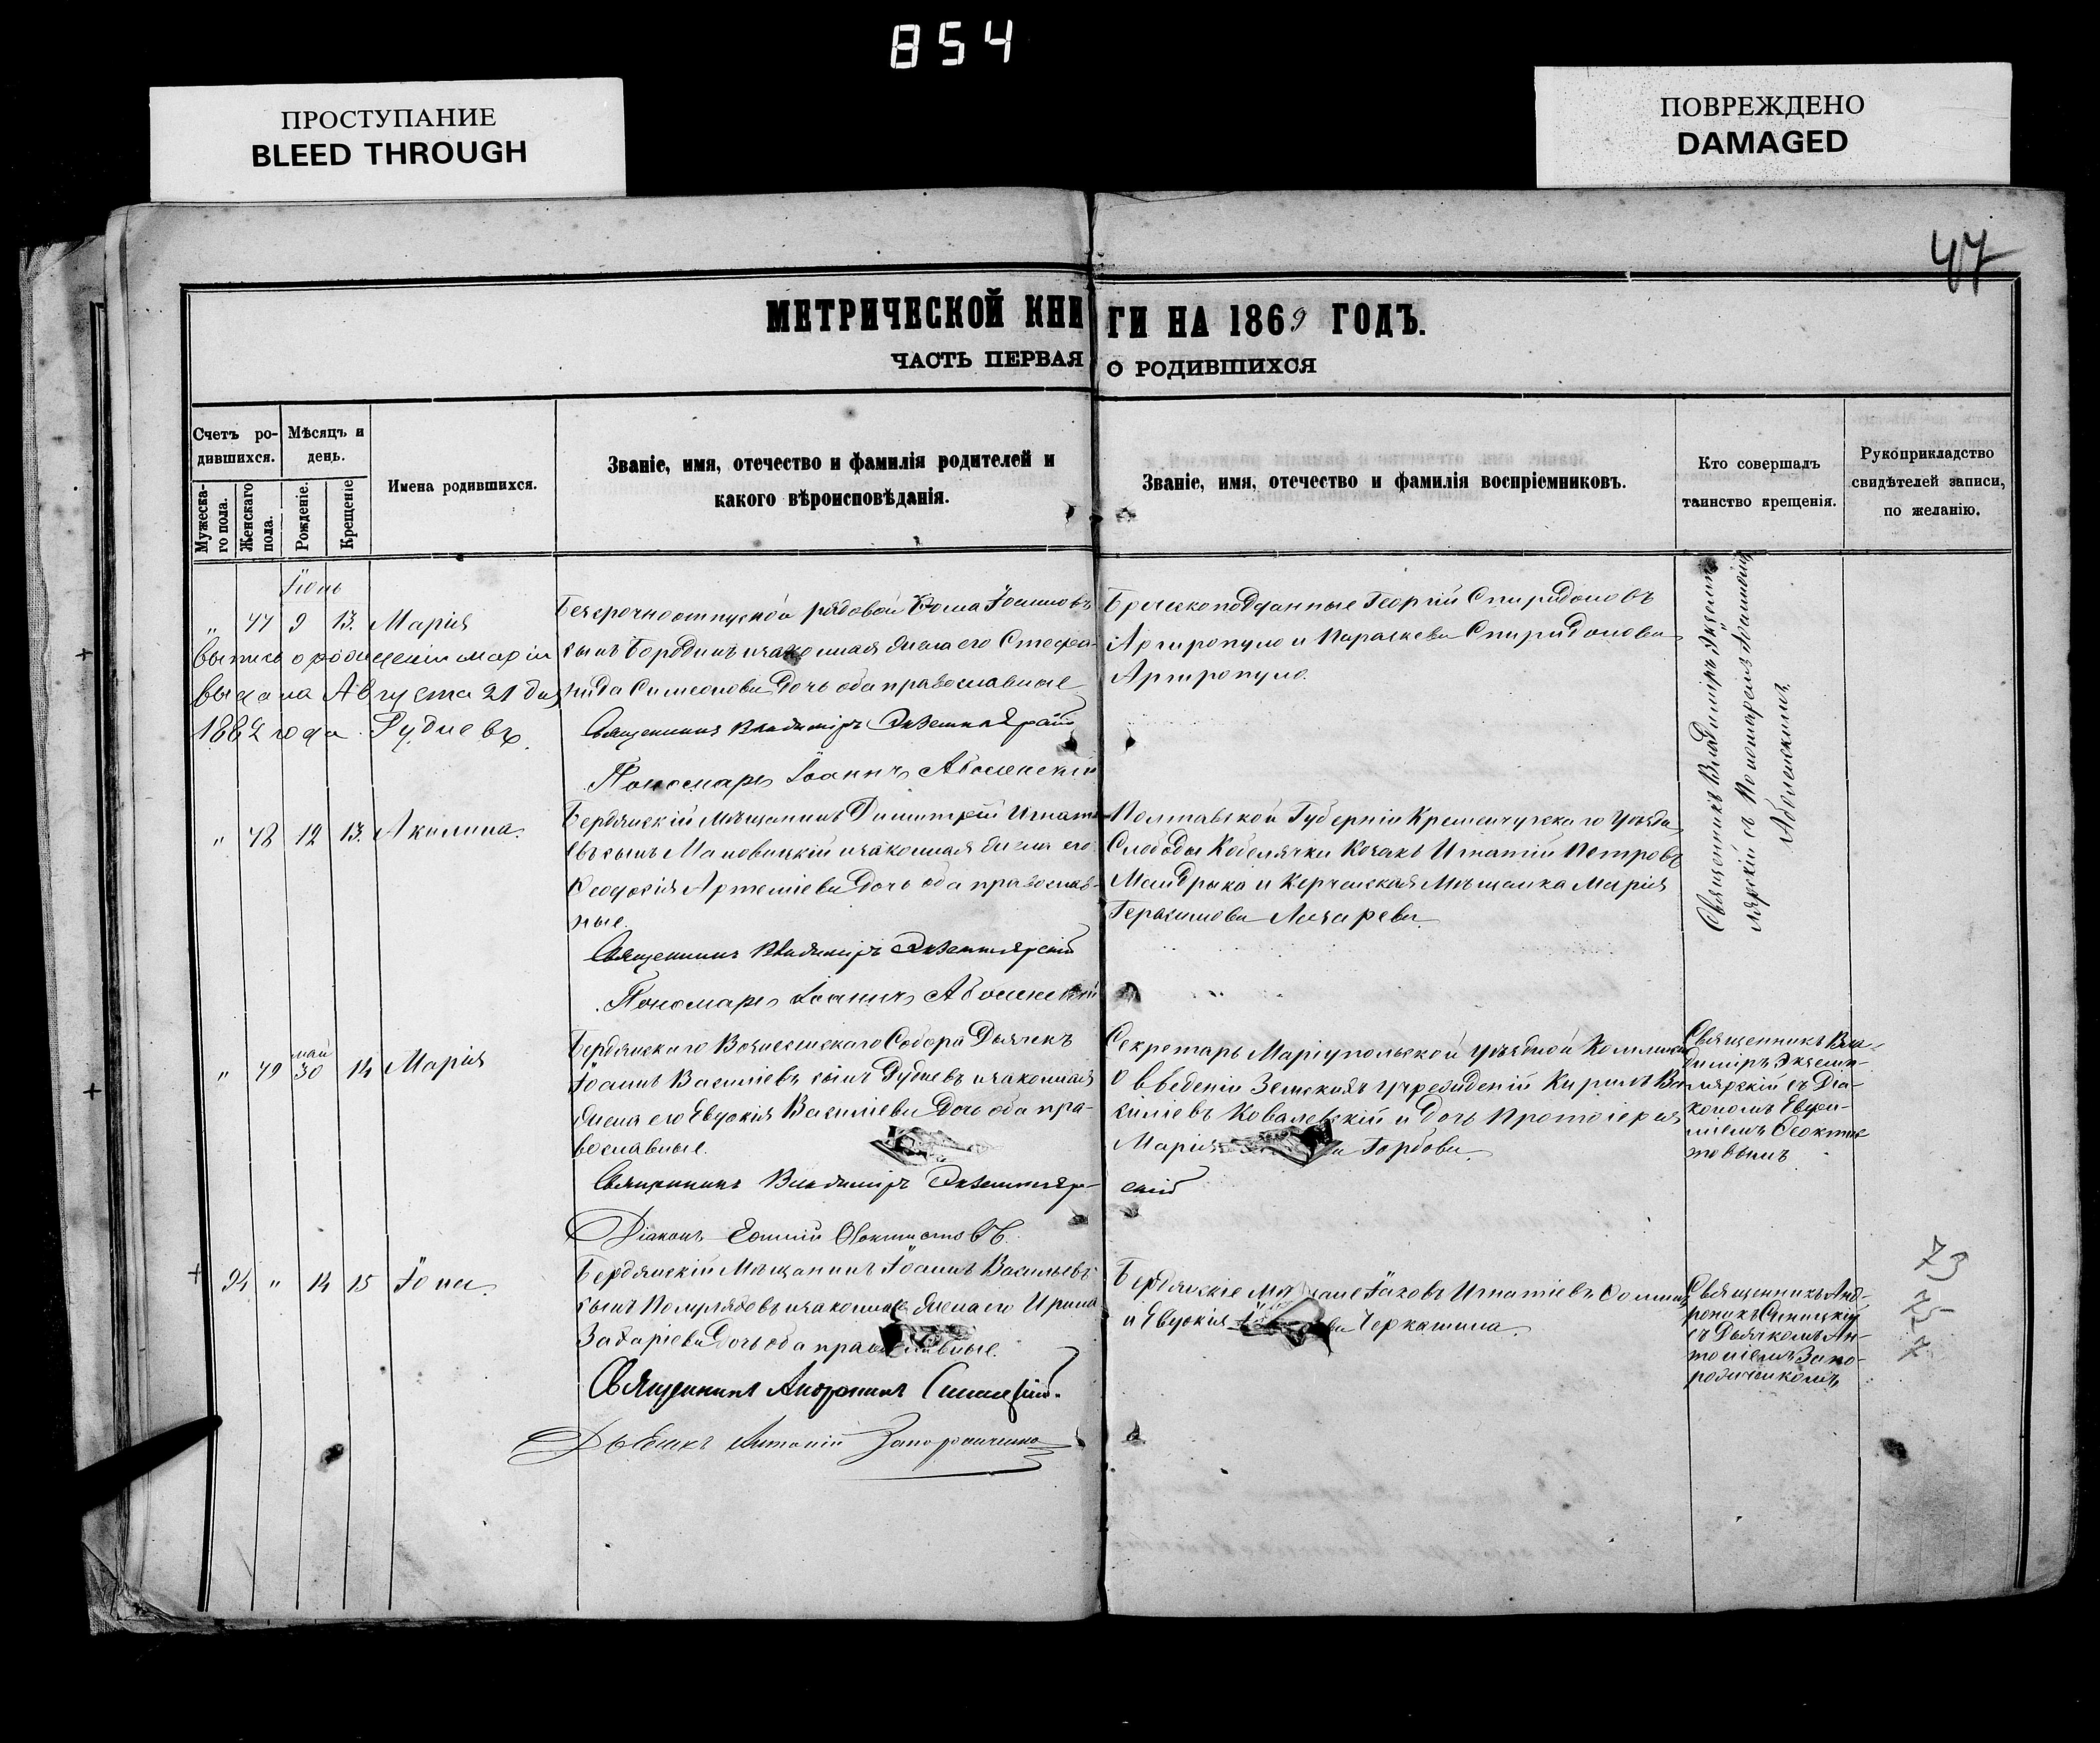 854
ПРОСТУПАНИЕ
BLEED THROUGH
ПОВРЕЖДЕНО
DAMAGED
47
МЕТРИЧЕСКОЙ КНИГИ НА 1869 ГОДЪ.
ЧАСТЬ ПЕРВАЯ О РОДИВШИХСЯ
Счетъ ро-
дившихся.
Мужеска-
го пола.
Женскаго
пола.
Мѣсяцъ и
день.
Рожденіе.
Крещеніе
Имена родившихся.
Званіе, имя, отечество и фамилія родителей и
какого вѣроисповѣданія.
Званіе, имя, отечество и фамилія воспріемниковъ.
Кто совершалъ
таинство крещенія.
Рукоприкладство
свидѣтелей записи,
по желанію.
Іюнь
„ 47 9 13. Марія
выпись о рожденіи Маріи
выдана Августа 21 дня
1882 года. Рудневъ.
Безсрочноотпускной рядовой Ѳома Іоанновъ
сынъ Бородинъ и законная жена его Стефа-
нида Симеонова дочь оба православные
Священникъ Владиміръ Экземплярскій
Пономарь Іоаннъ Аболенскій
Греческоподданные Георгій Спиридоновъ
Аргиропуло и Параскева Спиридонова
Аргиропуло.
Священникъ Владиміръ Экземп-
лярскій съ Пономаремъ Іоанномъ
Аболенскимъ.
„ 48 12 13. Акилина.
Бердянскій Мѣщанинъ Димитрій Игнать-
евъ сынъ Мановицкій и законная жена его
Ѳеодосія Артеміева дочь оба православ-
ные.
Священникъ Владиміръ Экземплярскій
Пономарь Іоаннъ Аболенскій
Полтавской Губерніи Кременчугскаго Уѣзда
Слободы Кобелячки Козакъ Игнатій Петровъ
Мандрыка и Керченская Мѣщанка Марія
Герасимова Лазарева.
„ 49 май 30 14 Марія
Бердянскаго Вознесенскаго Собора Дьячекъ
Іоаннъ Василіевъ сынъ Рудневъ и законная
жена его Евдокія Василіева дочь оба пра-
вославные.
Священникъ Владиміръ Экземпляр-
скій
Діаконъ Ѳеоктистовъ.
Секретарь Маріупольской уѣздной Коммисіи
о введеніи Земскихъ учрежденій Кирилъ Ва-
силіевъ Ковалевскій и дочь Протоіерея
Марія Горбова.
Священникъ Вла-
диміръ Экземп-
лярскій съ Діа-
кономъ Евѳи-
міемъ Ѳеоктис-
товымъ
94 „ 14 15 Іона.
Бердянскій Мѣщанинъ Іоаннъ Васильевъ
сынъ Полулядовъ и законная жена его Ирина
Захаріева дочь оба православные.
Священникъ Андроникъ Синицкій.
Дьячекъ Антоній Запорожченко
Бердянскіе Мѣщане Іаковъ Игнатіевъ Ѳоминъ
и Евдокія Черкашина.
Священникъ Анд-
роникъ Синицкій
съ Дьячкомъ Ан-
тоніемъ Запо-
рожченкомъ
73
25
7